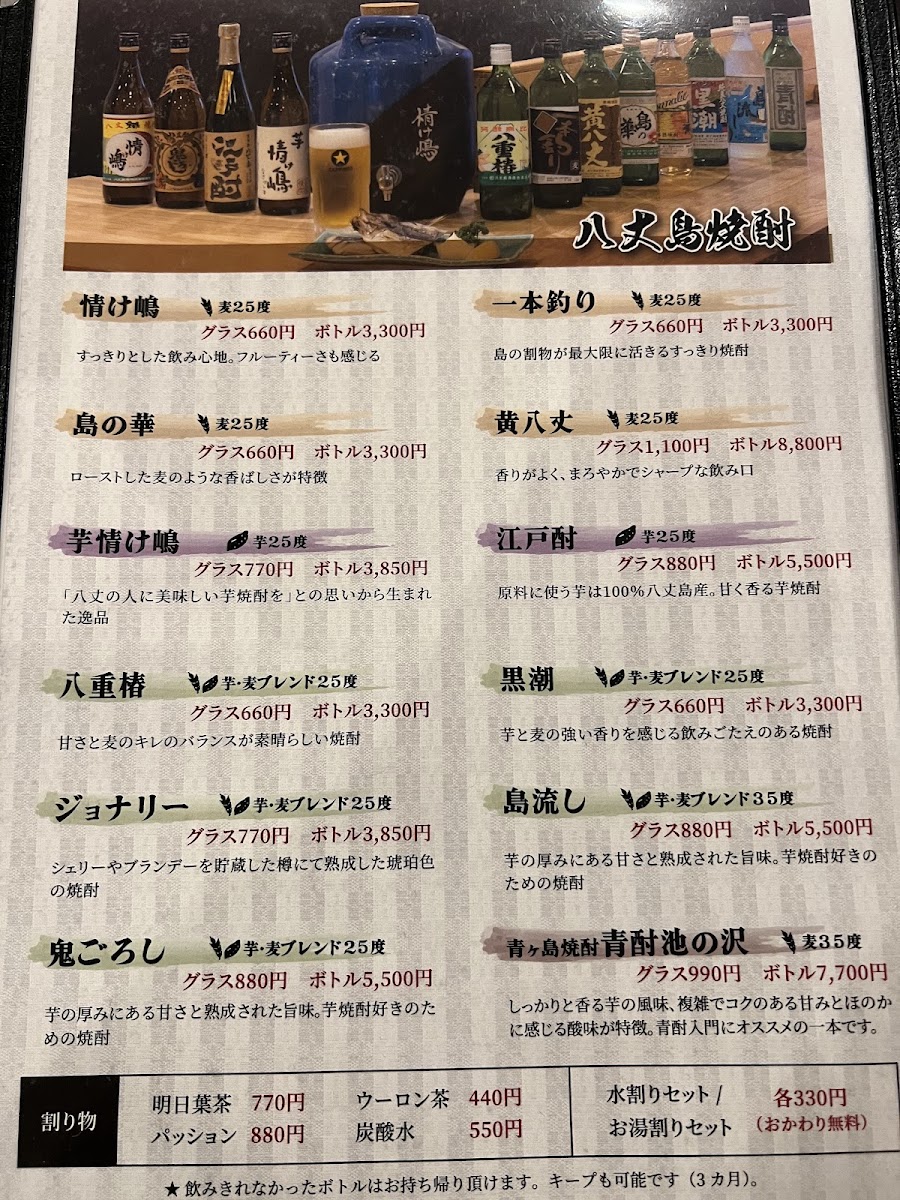 八丈島焼酎
情け嶋 麦25度
グラス660円 ボトル3,300円
すっきりとした飲み心地。フルーティーさも感じる
一本釣り 麦25度
グラス660円 ボトル3,300円
島の割物が最大限に活きるすっきり焼酎
島の華 麦25度
グラス660円 ボトル3,300円
ローストした麦のような香ばしさが特徴
黄八丈 麦25度
グラス1,100円 ボトル8,800円
香りがよく、まろやかでシャープな飲み口
芋情け嶋 芋25度
グラス770円 ボトル3,850円
「八丈の人に美味しい芋焼酎を」との思いから生まれ
た逸品
江戸酎 芋25度
グラス880円 ボトル5,500円
原料に使う芋は100%八丈島産。甘く香る芋焼酎
八重椿 芋・麦ブレンド25度
グラス660円 ボトル3,300円
甘さと麦のキレのバランスが素晴らしい焼酎
黒潮 芋・麦ブレンド25度
グラス660円 ボトル3,300円
芋と麦の強い香りを感じる飲みごたえのある焼酎
ジョナリー 芋・麦ブレンド25度
グラス770円 ボトル3,850円
シェリーやブランデーを貯蔵した樽にて熟成した琥珀色
の焼酎
島流し 芋・麦ブレンド35度
グラス880円 ボトル5,500円
芋の厚みにある甘さと熟成された旨味。芋焼酎好きの
ための焼酎
鬼ごろし 芋・麦ブレンド25度
グラス880円 ボトル5,500円
芋の厚みにある甘さと熟成された旨味。芋焼酎好きのた
めの焼酎
青ヶ島焼酎青酎池の沢 麦35度
グラス990円 ボトル7,700円
しっかりと香る芋の風味、複雑でコクのある甘みとほのか
に感じる酸味が特徴。青酎入門にオススメの一本です。
割り物
明日葉茶 770円 ウーロン茶 440円
パッション 880円 炭酸水 550円
水割りセット / 各330円
お湯割りセット (おかわり無料)
★飲みきれなかったボトルはお持ち帰り頂けます。キープも可能です(3カ月)。
情け嶋
江戸酎
芋 情け嶋
情け嶋
八重椿
一本釣り
黄八丈
島の華
黒潮
島流し
青酎